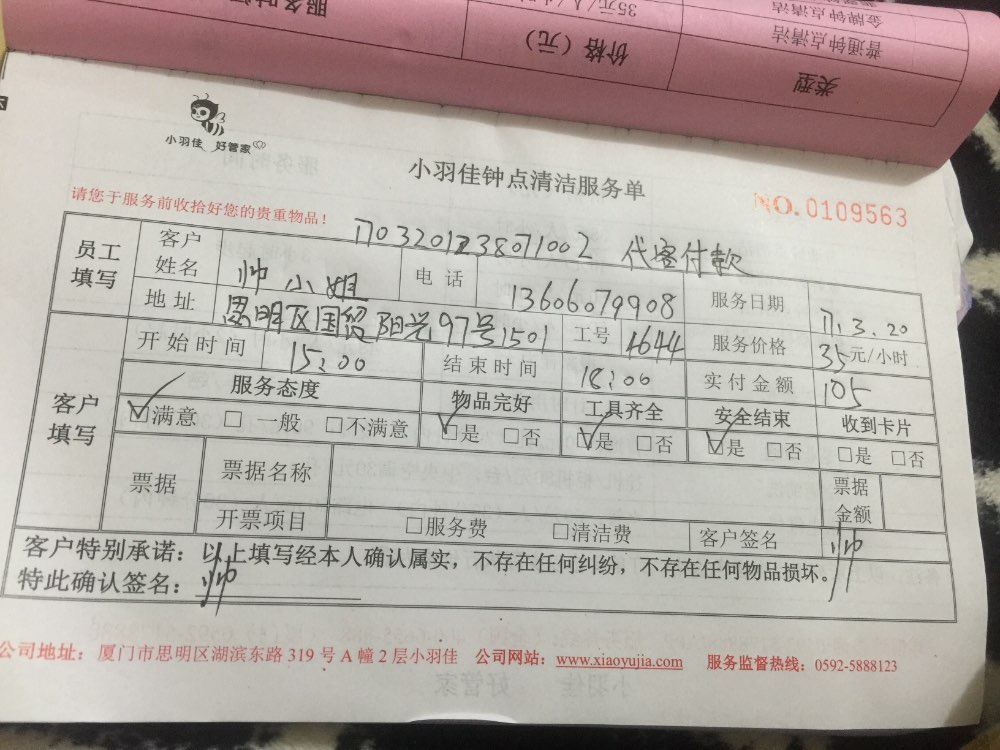 服务时间
35元/人/小时
金牌钟点清洁
普通钟点清洁
价格（元）
类型
小羽佳 好管家
小羽佳钟点清洁服务单
请您于服务前收拾好您的贵重物品！
NO.0109563
1703201238071002 代客付款
员工填写 客户姓名 帅小姐 电话 13606079908 服务日期 17.3.20
地址 思明区国贸阳光97号1501 工号 1644 服务价格 35元/小时
开始时间 15:00 结束时间 18:00 实付金额 105
客户填写 服务态度 物品完好 工具齐全 安全结束 收到卡片
☑满意 □一般 □不满意 ☑是 □否 ☑是 □否 ☑是 □否 □是 □否
票据 票据名称 票据金额
开票项目 □服务费 □清洁费 客户签名 帅
客户特别承诺：以上填写经本人确认属实，不存在任何纠纷，不存在任何物品损坏。
特此确认签名：帅
公司地址：厦门市思明区湖滨东路 319 号 A 幢 2 层小羽佳 公司网站：www.xiaoyujia.com 服务监督热线：0592-5888123